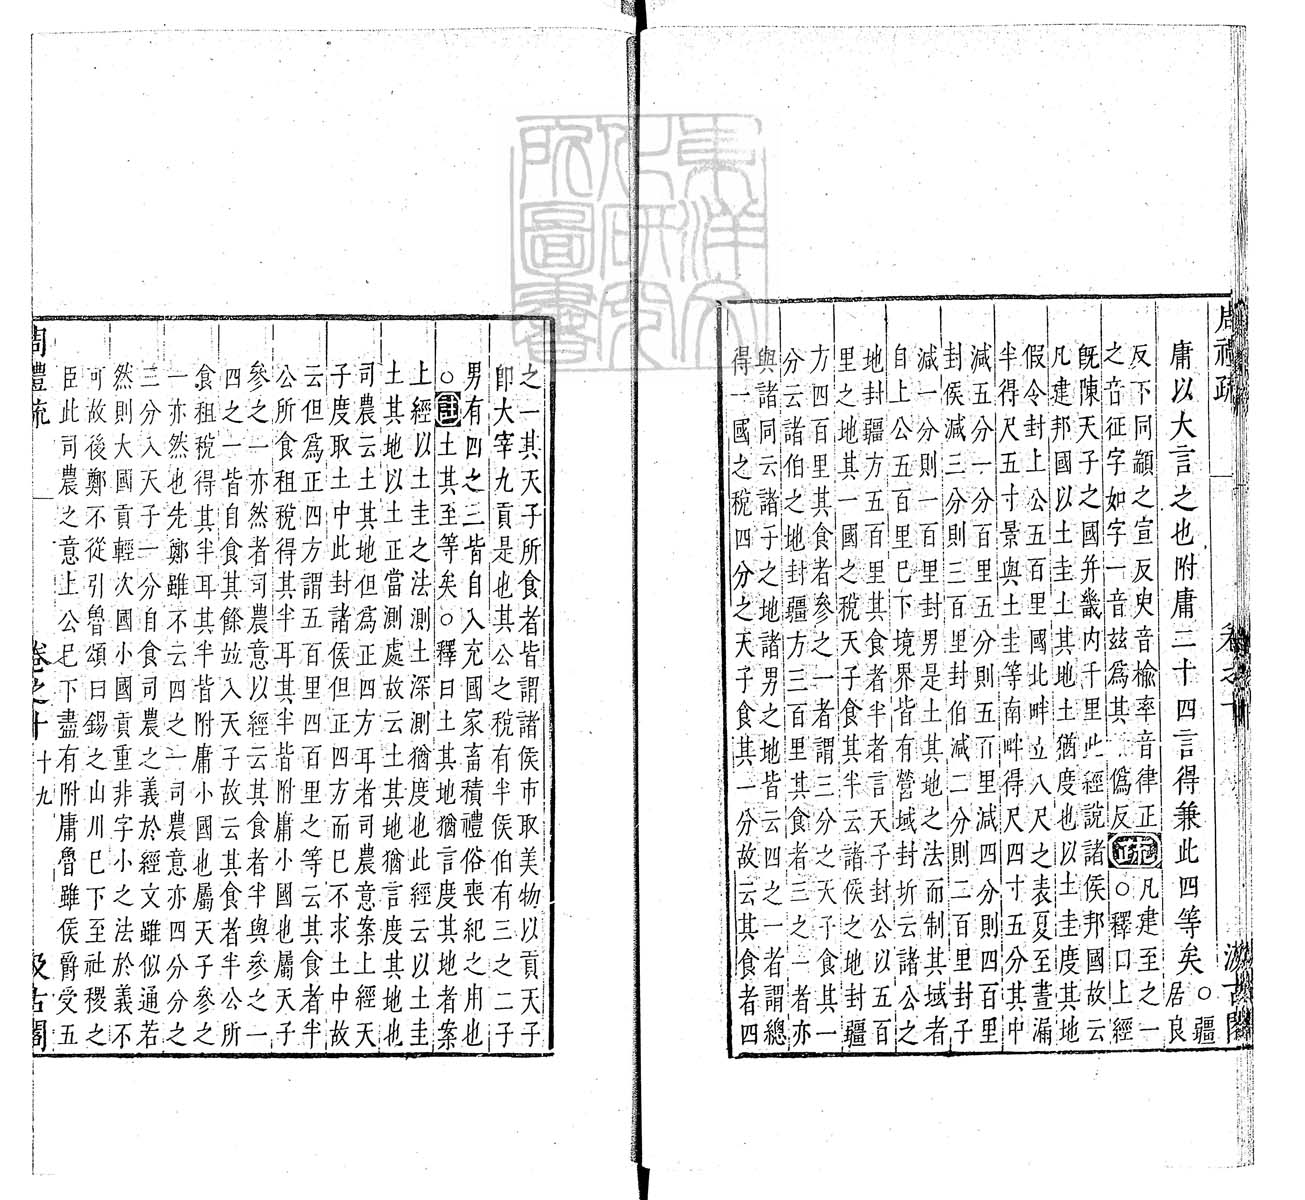 周禮疏 卷之十 汲古閣
庸以大言之也附庸二十四言得兼此四等矣○疆居良
反下同顓之宣反史音楡率音律正
之音征字如字一音玆爲其僞反疏凡建至之一
○釋曰上經
既陳天子之國并畿內千里此經說諸侯邦國故云
凡建邦國以土圭土其地土猶度也以土圭度其地
假令封上公五百里國北畔立八尺之表夏至晝漏
半得尺五寸景與土圭等南畔得尺四寸五分其中
減五分一分百里五分則五百里減四分則四百里
封侯減三分則三百里封伯減二分則二百里封子
減一分則一百里封男是土其地之法而制其域者
自上公五百里已下境界皆有營域封圻云諸公之
地封疆方五百里其食者半者言天子封公以五百
里之地其一國之稅天子食其半云諸侯之地封疆
方四百里其食者參之一者謂三分之天子食其一
分云諸伯之地封疆方三百里其食者三之一者亦
與諸同云諸子之地諸男之地皆云四之一者謂總
得一國之稅四分之天子食其一分故云其食者四
之一其天子所食者皆謂諸侯市取美物以貢天子
卽大宰九貢是也其公之稅有半侯伯有三之二子
男有四之三皆自入充國家畜積禮俗喪紀之用也
○註土其至等矣○釋曰土其地猶言度其地者案
上經以土圭之法測土深測猶度也此經云以土圭
土其地以土正當測處故云土其地猶言度其地也
司農云土其地但爲正四方耳者司農意案上經天
子度取土中此封諸侯但正四方而已不求土中故
云但爲正四方謂五百里四百里之等云其食者半
公所食租稅得其半耳其半皆附庸小國也屬天子
參之一亦然者司農意以經云其食者半與參之一
四之一皆自食其餘竝入天子故云其食者半公所
食租稅得其半耳其半皆附庸小國也屬天子參之
一亦然也先鄭雖不云四之一司農意亦四分分之
三分入天子一分自食司農之義於經文雖似通若
然則大國貢輕次國小國貢重非字小之法於義不
可故後鄭不從引魯頌曰錫之山川已下至社稷之
臣此司農之意上公已下盡有附庸魯雖侯爵受五
周禮疏 卷之十 十九 汲古閣
東洋文
化研究
所圖書